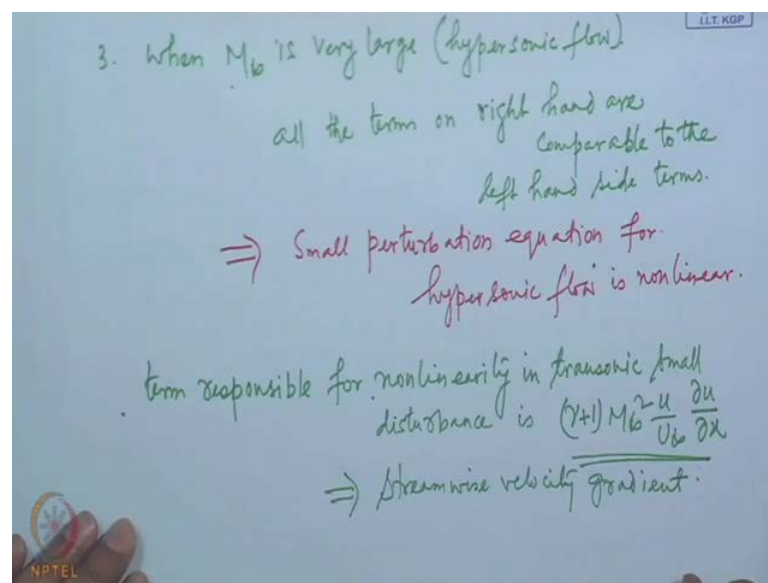 I.I.T. KGP
3. When M∞ is very large (hypersonic flow)
all the terms on right hand are
comparable to the
left hand side terms.
⇒ Small perturbation equation for
hypersonic flow is nonlinear.
term responsible for nonlinearity in transonic small
disturbance is (γ+1) M∞² u/U∞ ∂u/∂x
⇒ Streamwise velocity gradient.
NPTEL